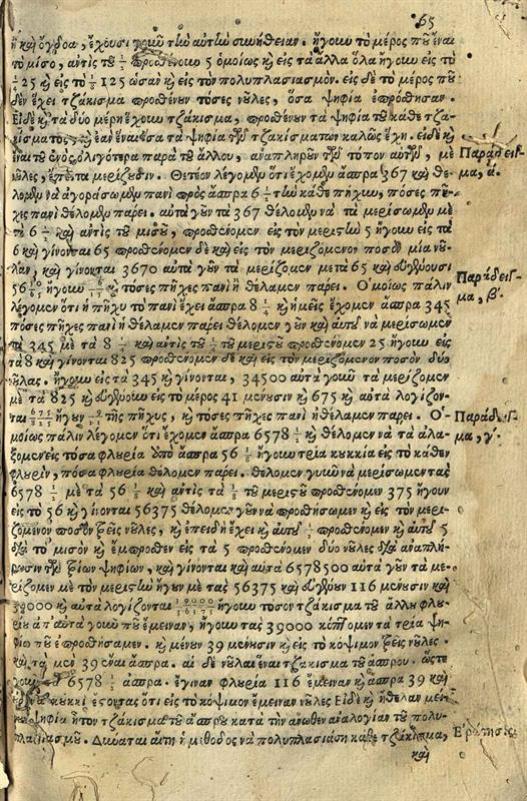 65
ἢ καὶ ὄγδοα, ἔχουσι τὴν αὐτὴν συνήθειαν. ἤγουν τὸ μέρος ποῦ ἔναι
τὸ μίσο, αὐτὶς τοῦ 1/2 προθένουν 5 ὁμοίως καὶ εἰς τὰ ἄλλα ὅλα ἤγουν εἰς τὸ
25 καὶ εἰς τὸ 125 ὡσὰν καὶ εἰς τὸν πολυπλασιασμόν. εἰς δὲ τὸ μέρος ποῦ
δὲν ἔχει τζάκισμα προθένουν τόσες νῦλες, ὅσα ψηφία ἐπρόθησαν.
Εἰδὲ καὶ τὰ δύο μέρη ἔχουν τζάκισμα, προθένουν τὰ ψηφία τοῦ κάθε τζα-
κίσματος, καὶ ἐὰν ἔναι ἴσα τὰ ψηφία τῶν τζακισμάτων καλῶς ἔχη. εἰδὲ καὶ
ἔναι τοῦ ἑνὸς ὀλιγότερα παρὰ τοῦ ἄλλου, ἀναπληροῦν τὸν τόπον αὐτῶν, μὲ
νῦλες, ἔπειτα μερίζουν. Θέτεον λέγομεν ὅτι ἔχομεν ἄσπρα 367 καὶ θέ-
λομεν νὰ ἀγοράσωμεν πανὶ πρὸς ἄσπρα 6 1/2 τὴν κάθε πῆχυν, πόσες πῆ-
χες πανὶ θέλομεν πάρει. αὐτὰ γοῦν τὰ 367 θέλομεν νὰ τὰ μερίσωμεν μὲ
τὰ 6 1/2 καὶ αὐτὶς τοῦ μισοῦ, προθένομεν εἰς τὸν μεριστὴν 5 ἤγουν εἰς τὰ
6 καὶ γίνονται 65 προθένομεν δὲ καὶ εἰς τὸν μεριζόμενον ποσὸν μία νῦ-
λαν, καὶ γίνονται 3670 αὐτὰ γοῦν τὰ μερίζομεν μετὰ 65 καὶ εὐγένουσι
56 ἤγουν καὶ τόσες πῆχες πανὶ ἤθέλαμεν πάρει. Ὁμοίως πάλιν
λέγομεν ὅτι ἡ πῆχυ τὸ πανὶ ἔχει ἄσπρα 8 1/4 καὶ ἡμεῖς ἔχομεν ἄσπρα 345
πόσες πῆχες πανὶ ἠθέλαμεν πάρει θέλομεν γοῦν καὶ αὐτοῦ νὰ μερίσωμεν
τὰ 345 μὲ τὰ 8 1/4 καὶ αὐτὶς τοῦ 1/4 τοῦ μεριστοῦ προθένομεν 25 ἤγουν εἰς
τὰ 8 καὶ γίνονται 825 προθένομεν δὲ καὶ εἰς τὸν μεριζόμενον ποσὸν δύο
νῦλας. ἤγουν εἰς τὰ 345 καὶ γίνονται, 34500 αὐτὰ γοῦν τὰ μερίζομεν
μὲ τὰ 825 καὶ εὐγένουν εἰς τὸ μέρος 41 μένουσιν καὶ 675 καὶ αὐτὰ λογίζον-
ται 675/825 ἤγουν τῆς πῆχυς, καὶ τόσες πῆχες πανὶ ἠθέλαμεν πάρει. Ὁ-
μοίως πάλιν λέγομεν ὅτι ἔχομεν ἄσπρα 6578 1/2 καὶ θέλομεν νὰ τὰ ἀλά-
ξομεν εἰς τόσα φλωρία ἀπὸ ἄσπρα 56 ἤγουν τρία κυκκία εἰς τὸ κάθεν
φλωρὶν, πόσα φλωρία θέλομεν πάρει. θέλομεν γοῦν νὰ μερίσωμεν τὰς
6578 1/2 μὲ τὰ 56 καὶ αὐτὶς τὰ τοῦ μεριστοῦ προθένομεν 375 ἤγουν
εἰς τὸ 56 καὶ γίνονται 56375 θέλομεν γοῦν νὰ προθήσωμεν καὶ εἰς τὸν μερι-
ζόμενον ποσὸν τρεῖς νῦλες, καὶ ἐπειδὴ ἔχει καὶ αὐτοῦ 1/2 προθένομεν καὶ αὐτοῦ 5
διὰ τὸ μισὸν καὶ ἔμπροθεν εἰς τὰ 5 προθένομεν δύο νῦλες διὰ ἀναπλή-
ρωσιν τῶν τρίων ψηφίων, καὶ γίνονται καὶ αὐτὰ 6578500 αὐτὰ γοῦν τὰ με-
ρίζομεν μὲ τὸν μεριστὴν ἤγουν μὲ τὰς 56375 καὶ εὐγένουν 116 μένουσιν καὶ
39000 καὶ αὐτὰ λογίζονται ἤγουν τόσον τζάκισμα τοῦ ἄλλου φλω-
ρίου ἀπ' αὐτὰ γοῦν ποῦ ἔμειναν, ἤγουν τὰς 39000 κόπτομεν τὰ τρία ψη-
φία ποῦ ἐπροθήσαμεν. καὶ μένουν 39 μένουσιν καὶ εἰς τὸ κόψιμον τρεῖς νῦλες.
καὶ τὰ μὲν 39 εἶναι ἄσπρα. αἱ δὲ νῦλαι εἶναι τζάκισμα τοῦ ἄσπρου. ὥστε
6578 1/2 ἄσπρα. ἔγιναν φλωρία 116 ἔμειναν καὶ ἄσπρα 39 καὶ
κυκκὶ ἔσοντας ὅτι εἰς τὸ κόψιμον ἔμειναν νῦλες Εἰδὲ καὶ ἤθελαν μεί-
ψηφία ἦτον τζάκισμα τοῦ ἄσπρου κατὰ τὴν ἄνωθεν ἀναλογίαν τοῦ πολυ-
πλασιασμοῦ. Δύναται αὕτη ἡ μέθοδος νὰ πολυπλασιάσῃ κάθε τζάκισμα,
καὶ
Παράδειγ-
μα, α.
Παράδειγ-
μα, β.
Παράδειγ-
μα, γ.
Ἐρώτησις